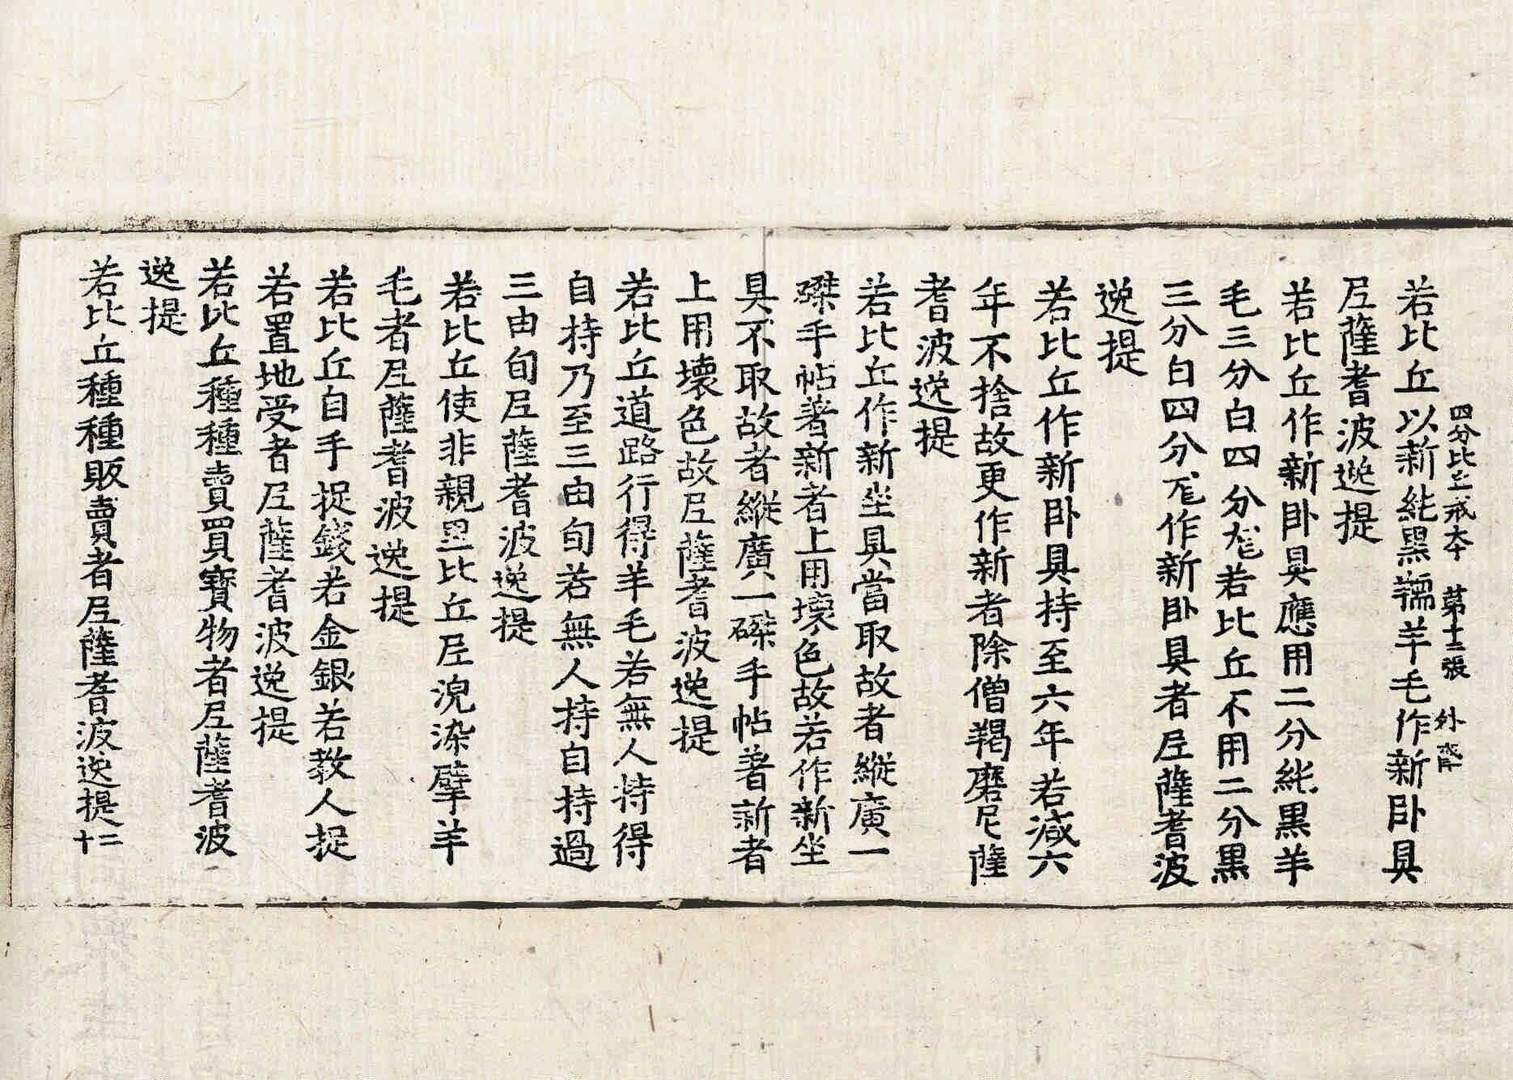 四分比丘戒本 第十三張 外
若比丘以新純黑羺羊毛作新臥具
尼薩耆波逸提
若比丘作新臥具應用二分純黑羊
毛三分白四分尨若比丘不用二分黑
三分白四分尨作新臥具者尼薩耆波
逸提
若比丘作新臥具持至六年若減六
年不捨故更作新者除僧羯磨尼薩
耆波逸提
若比丘作新坐具當取故者縱廣一
磔手帖著新者上用壞色故若作新坐
具不取故者縱廣一磔手帖著新者
上用壞色故尼薩耆波逸提
若比丘道路行得羊毛若無人持得
自持乃至三由旬若無人持自持過
三由旬尼薩耆波逸提
若比丘使非親里比丘尼浣染擘羊
毛者尼薩耆波逸提
若比丘自手捉錢若金銀若教人捉
若置地受者尼薩耆波逸提
若比丘種種賣買寶物者尼薩耆波
逸提
若比丘種種販賣者尼薩耆波逸提二十